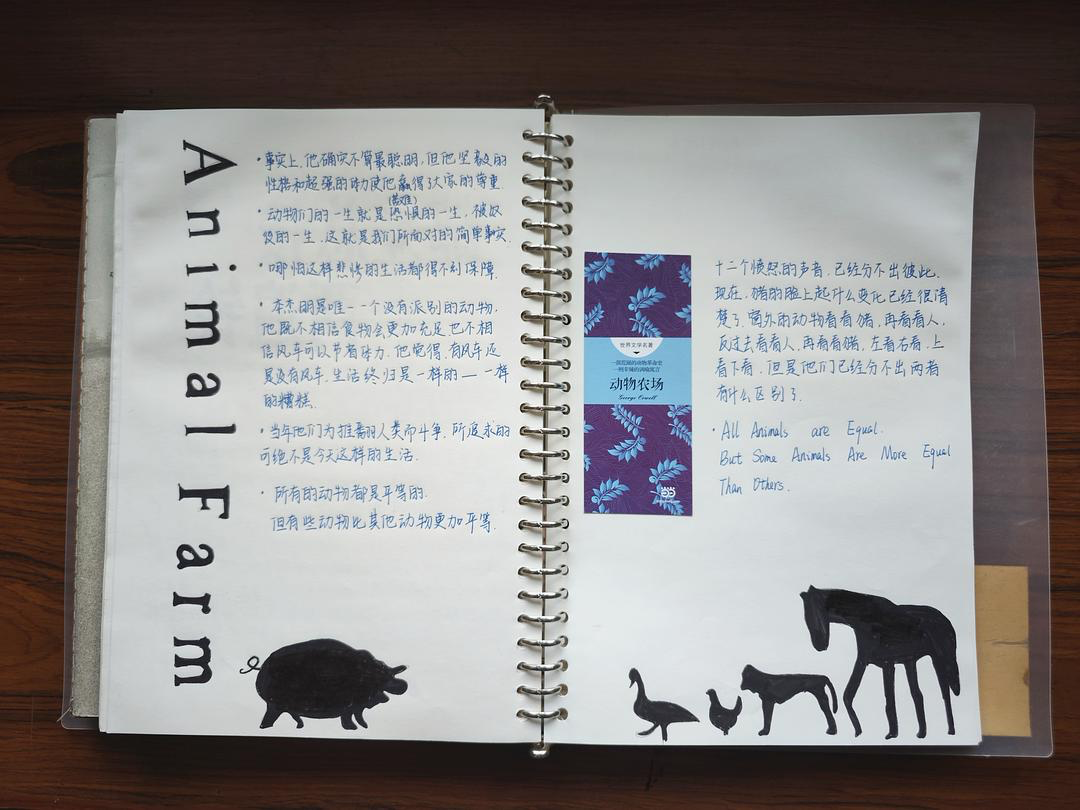 Animal Farm
·事实上,他确实不算最聪明,但他坚毅的
性格和超强的体力使他赢得了大家的尊重.
(艰难)
·动物们的一生就是恐惧的一生,被奴
役的一生,这就是我们所面对的简单事实.
·哪怕这样悲惨的生活都得不到保障.
·本杰明是唯一一个没有派别的动物,
他既不相信食物会更加充足也不相
信风车可以节省体力.他觉得,有风车还
是没有风车,生活终归是一样的——一样
的糟糕.
·当年他们为推翻人类而斗争,所追求的
可绝不是今天这样的生活.
·所有的动物都是平等的.
但有些动物比其他动物更加平等.
世界文学名著
动物农场
George Orwell
十二个愤怒的声音,已经分不出彼此.
现在,猪的脸上起什么变化已经很清
楚了.窗外的动物看看猪,再看看人,
反过去看看人,再看看猪,左看右看,上
看下看,但是他们已经分不出两者
有什么区别了.
·All Animals are Equal.
But Some Animals Are More Equal
Than Others.